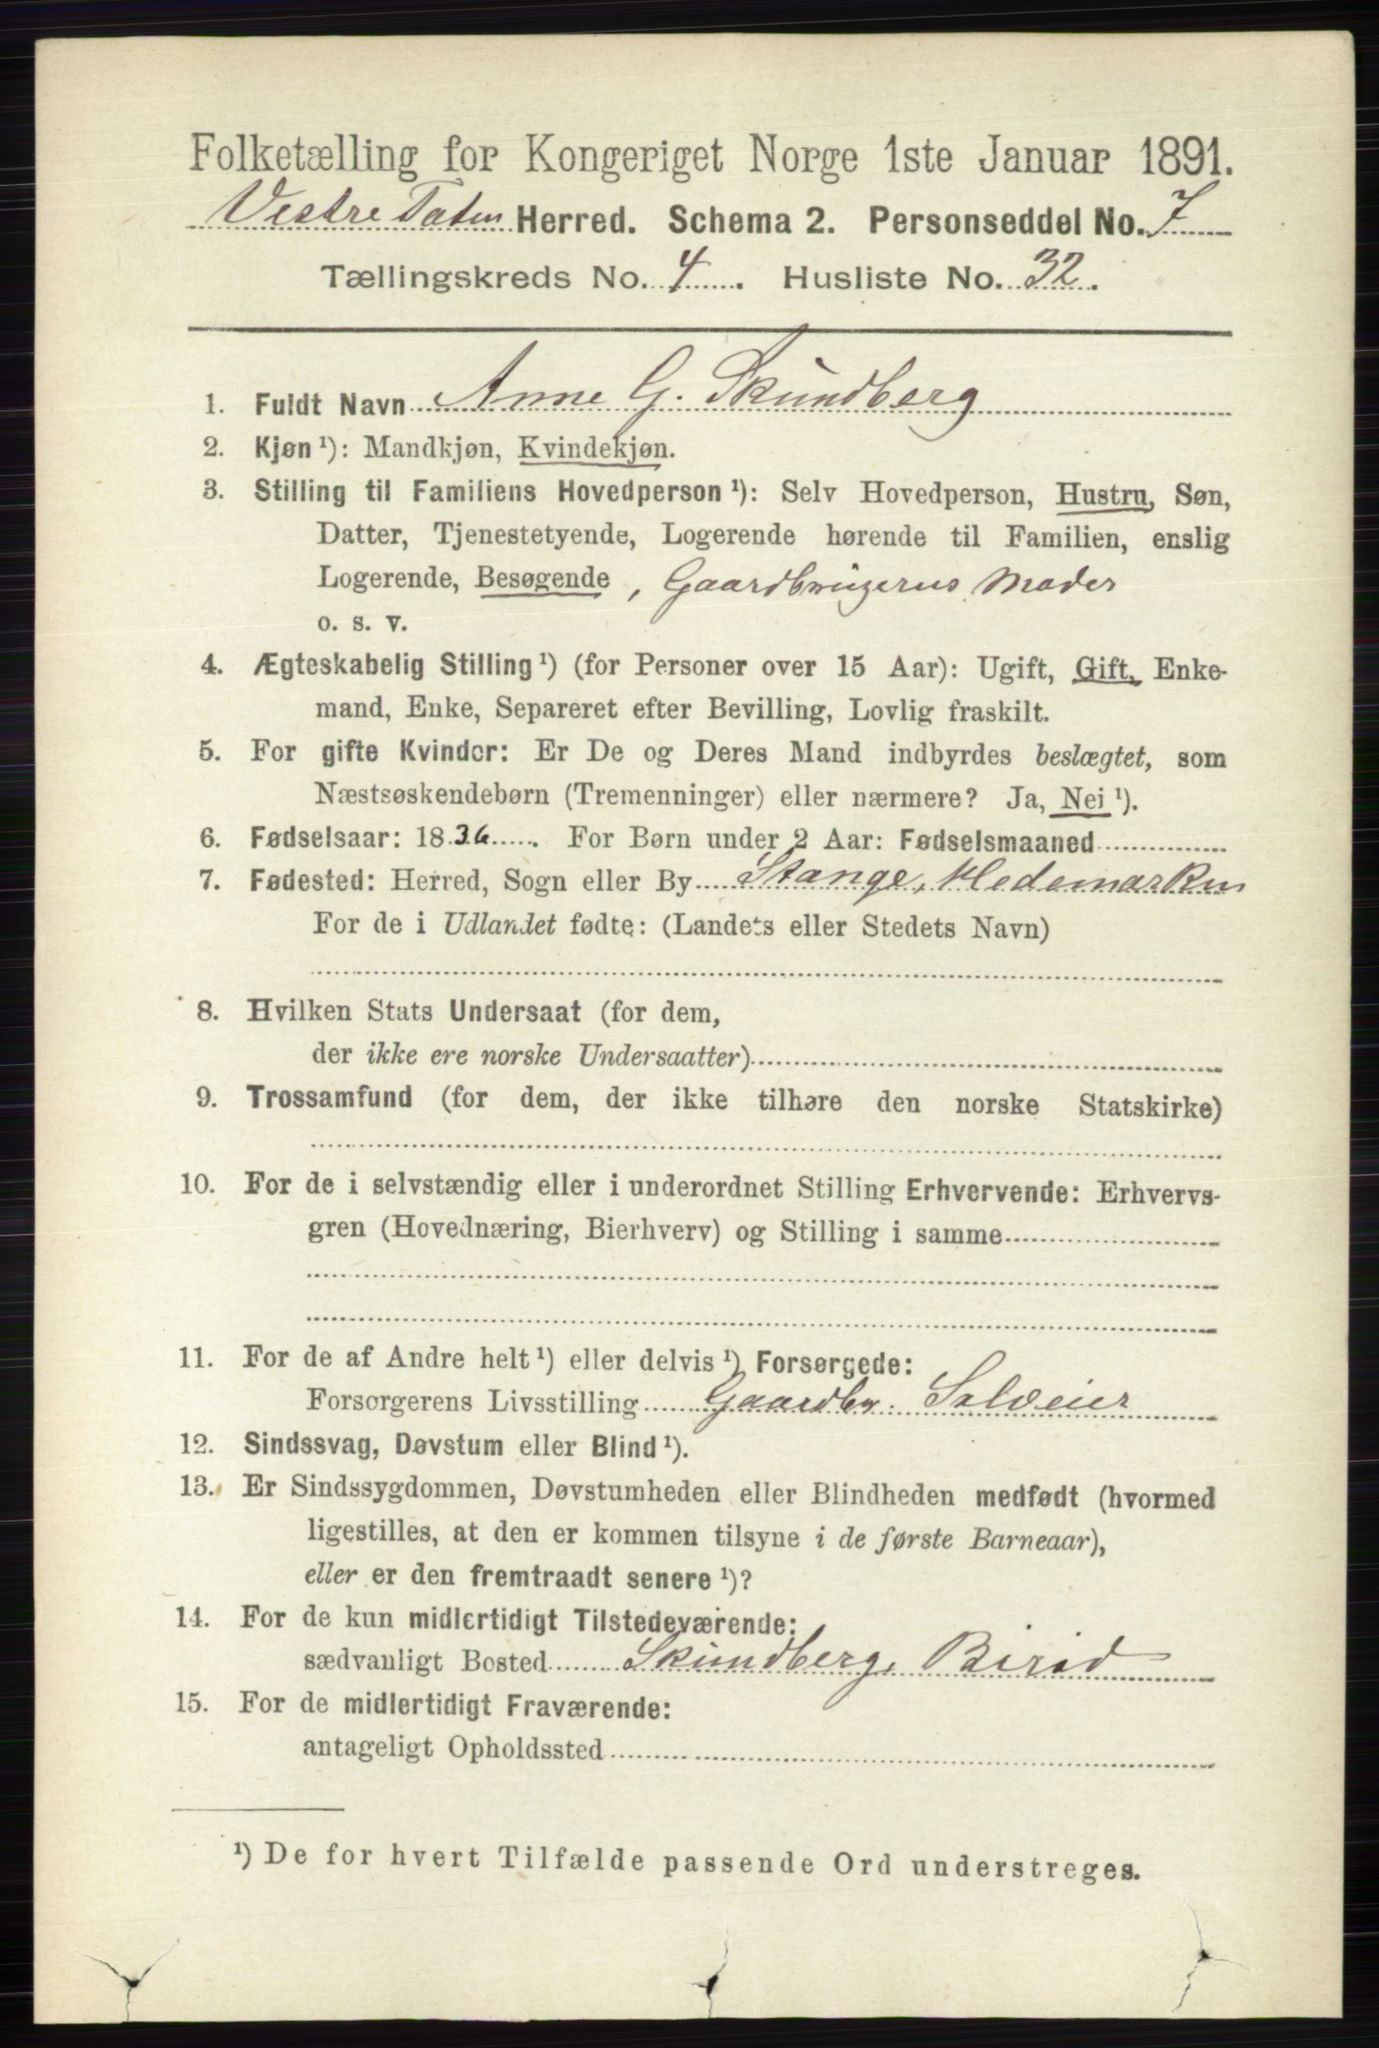 Folketælling for Kongeriget Norge 1ste Januar 1891.
Vestre Toten Herred. Schema 2. Personseddel No. 7
Tællingskreds No. 4. Husliste No. 32.
1. Fuldt Navn Anne G. Skundberg
2. Kjøn ¹): Mandkjøn, Kvindekjøn.
3. Stilling til Familiens Hovedperson ¹): Selv Hovedperson, Hustru, Søn,
Datter, Tjenestetyende, Logerende hørende til Familien, enslig
Logerende, Besøgende, Gaardbrugerens Moder
o. s. v.
4. Ægteskabelig Stilling ¹) (for Personer over 15 Aar): Ugift, Gift, Enke-
mand, Enke, Separeret efter Bevilling, Lovlig fraskilt.
5. For gifte Kvinder: Er De og Deres Mand indbyrdes beslægtet, som
Næstsøskendebørn (Tremenninger) eller nærmere? Ja, Nei ¹).
6. Fødselsaar: 1836. For Børn under 2 Aar: Fødselsmaaned
7. Fødested: Herred, Sogn eller By Stange, Hedemarken
For de i Udlandet fødte: (Landets eller Stedets Navn)
8. Hvilken Stats Undersaat (for dem,
der ikke ere norske Undersaatter)
9. Trossamfund (for dem, der ikke tilhøre den norske Statskirke)
10. For de i selvstændig eller i underordnet Stilling Erhvervende: Erhvervs-
gren (Hovednæring, Bierhverv) og Stilling i samme
11. For de af Andre helt ¹) eller delvis ¹) Forsørgede:
Forsørgerens Livsstilling Gaardbr. Selveier
12. Sindssvag, Døvstum eller Blind ¹).
13. Er Sindssygdommen, Døvstumheden eller Blindheden medfødt (hvormed
ligestilles, at den er kommen tilsyne i de første Barneaar),
eller er den fremtraadt senere ¹)?
14. For de kun midlertidigt Tilstedeværende:
sædvanligt Bosted Skundberg, Birid
15. For de midlertidigt Fraværende:
antageligt Opholdssted
¹) De for hvert Tilfælde passende Ord understreges.